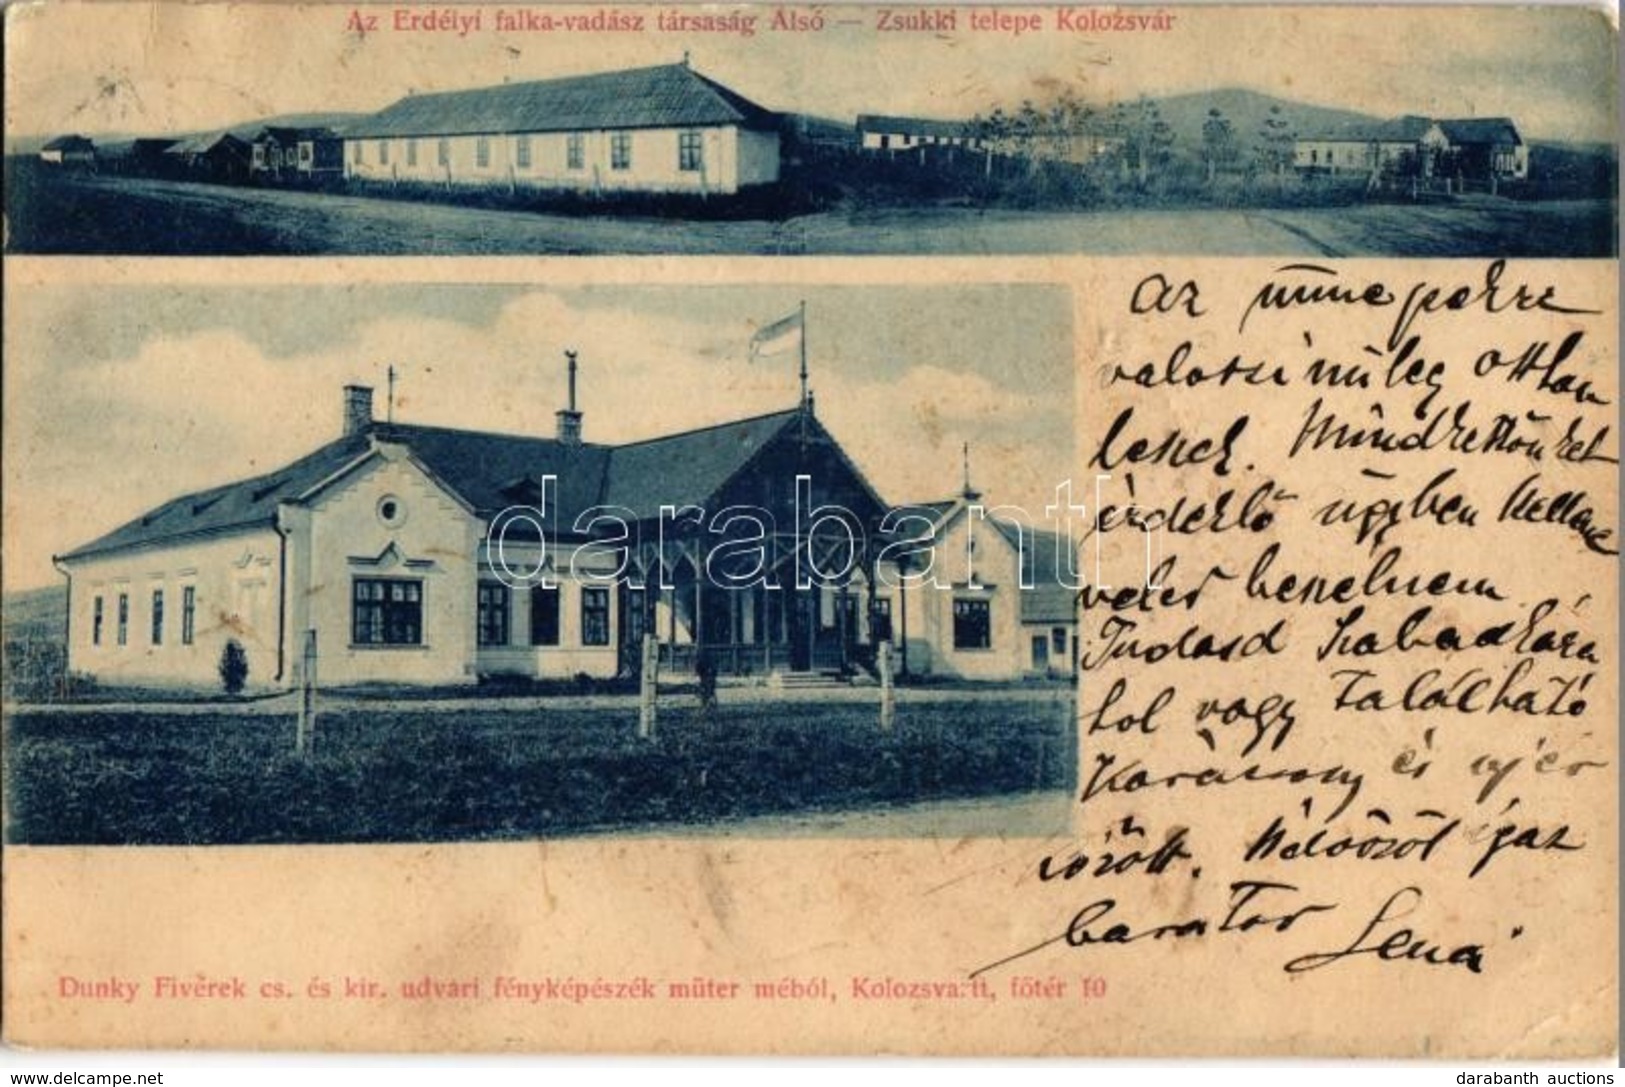 Az Erdélyi falka-vadász társaság Alsó — Zsukki telepe Kolozsvár
Az ünnepekre
valószinüleg otthon
leszek. Mindkettönket
érdeklö ügyben kellene
veled beszélnem
Tudasd szabadkára
hol vagy található
Karácsony és ujév
között. Üdvözöl igaz
barátod
darabanth
Dunky Fivérek cs. és kir. udvari fényképészék müter méböl, Kolozsva:tt, fötér 10
www.delcampe.net
darabanth auctions